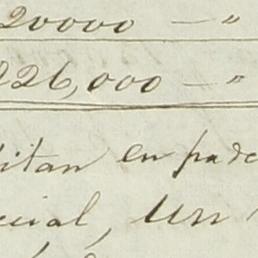 20000 — "
226,000 — "
itan en pade
cial, Un